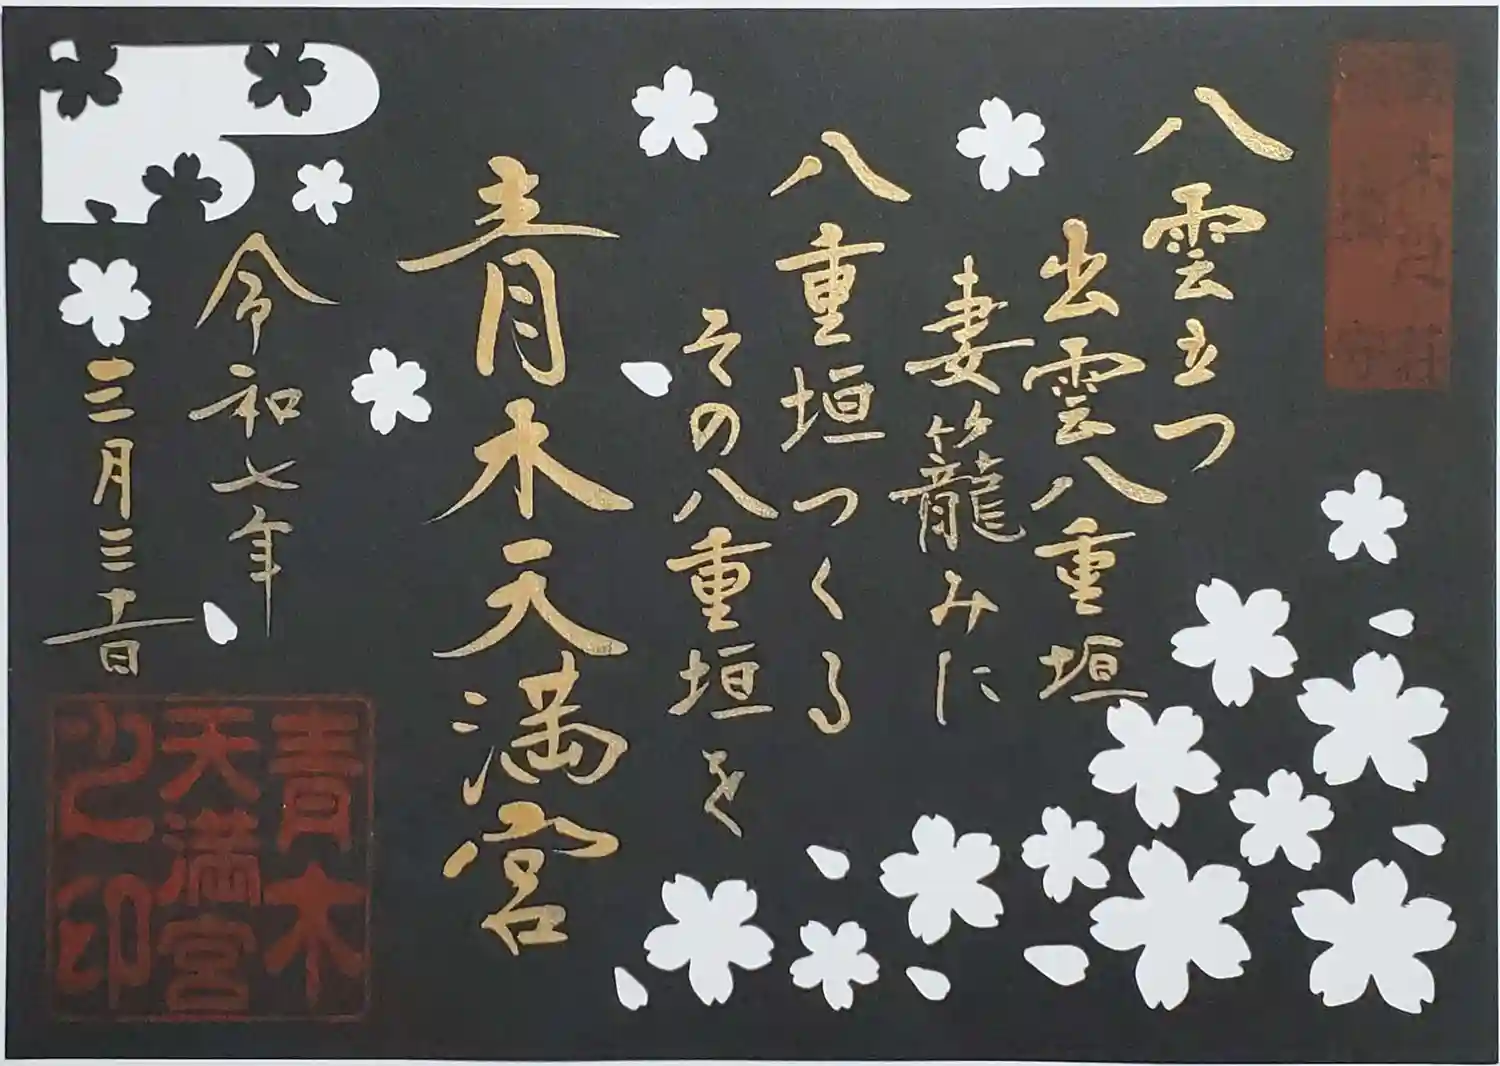 八雲立つ
出雲八重垣
妻籠みに
八重垣つくる
その八重垣を
青木天満宮
令和七年
三月三十一日
青木
天満宮
之印